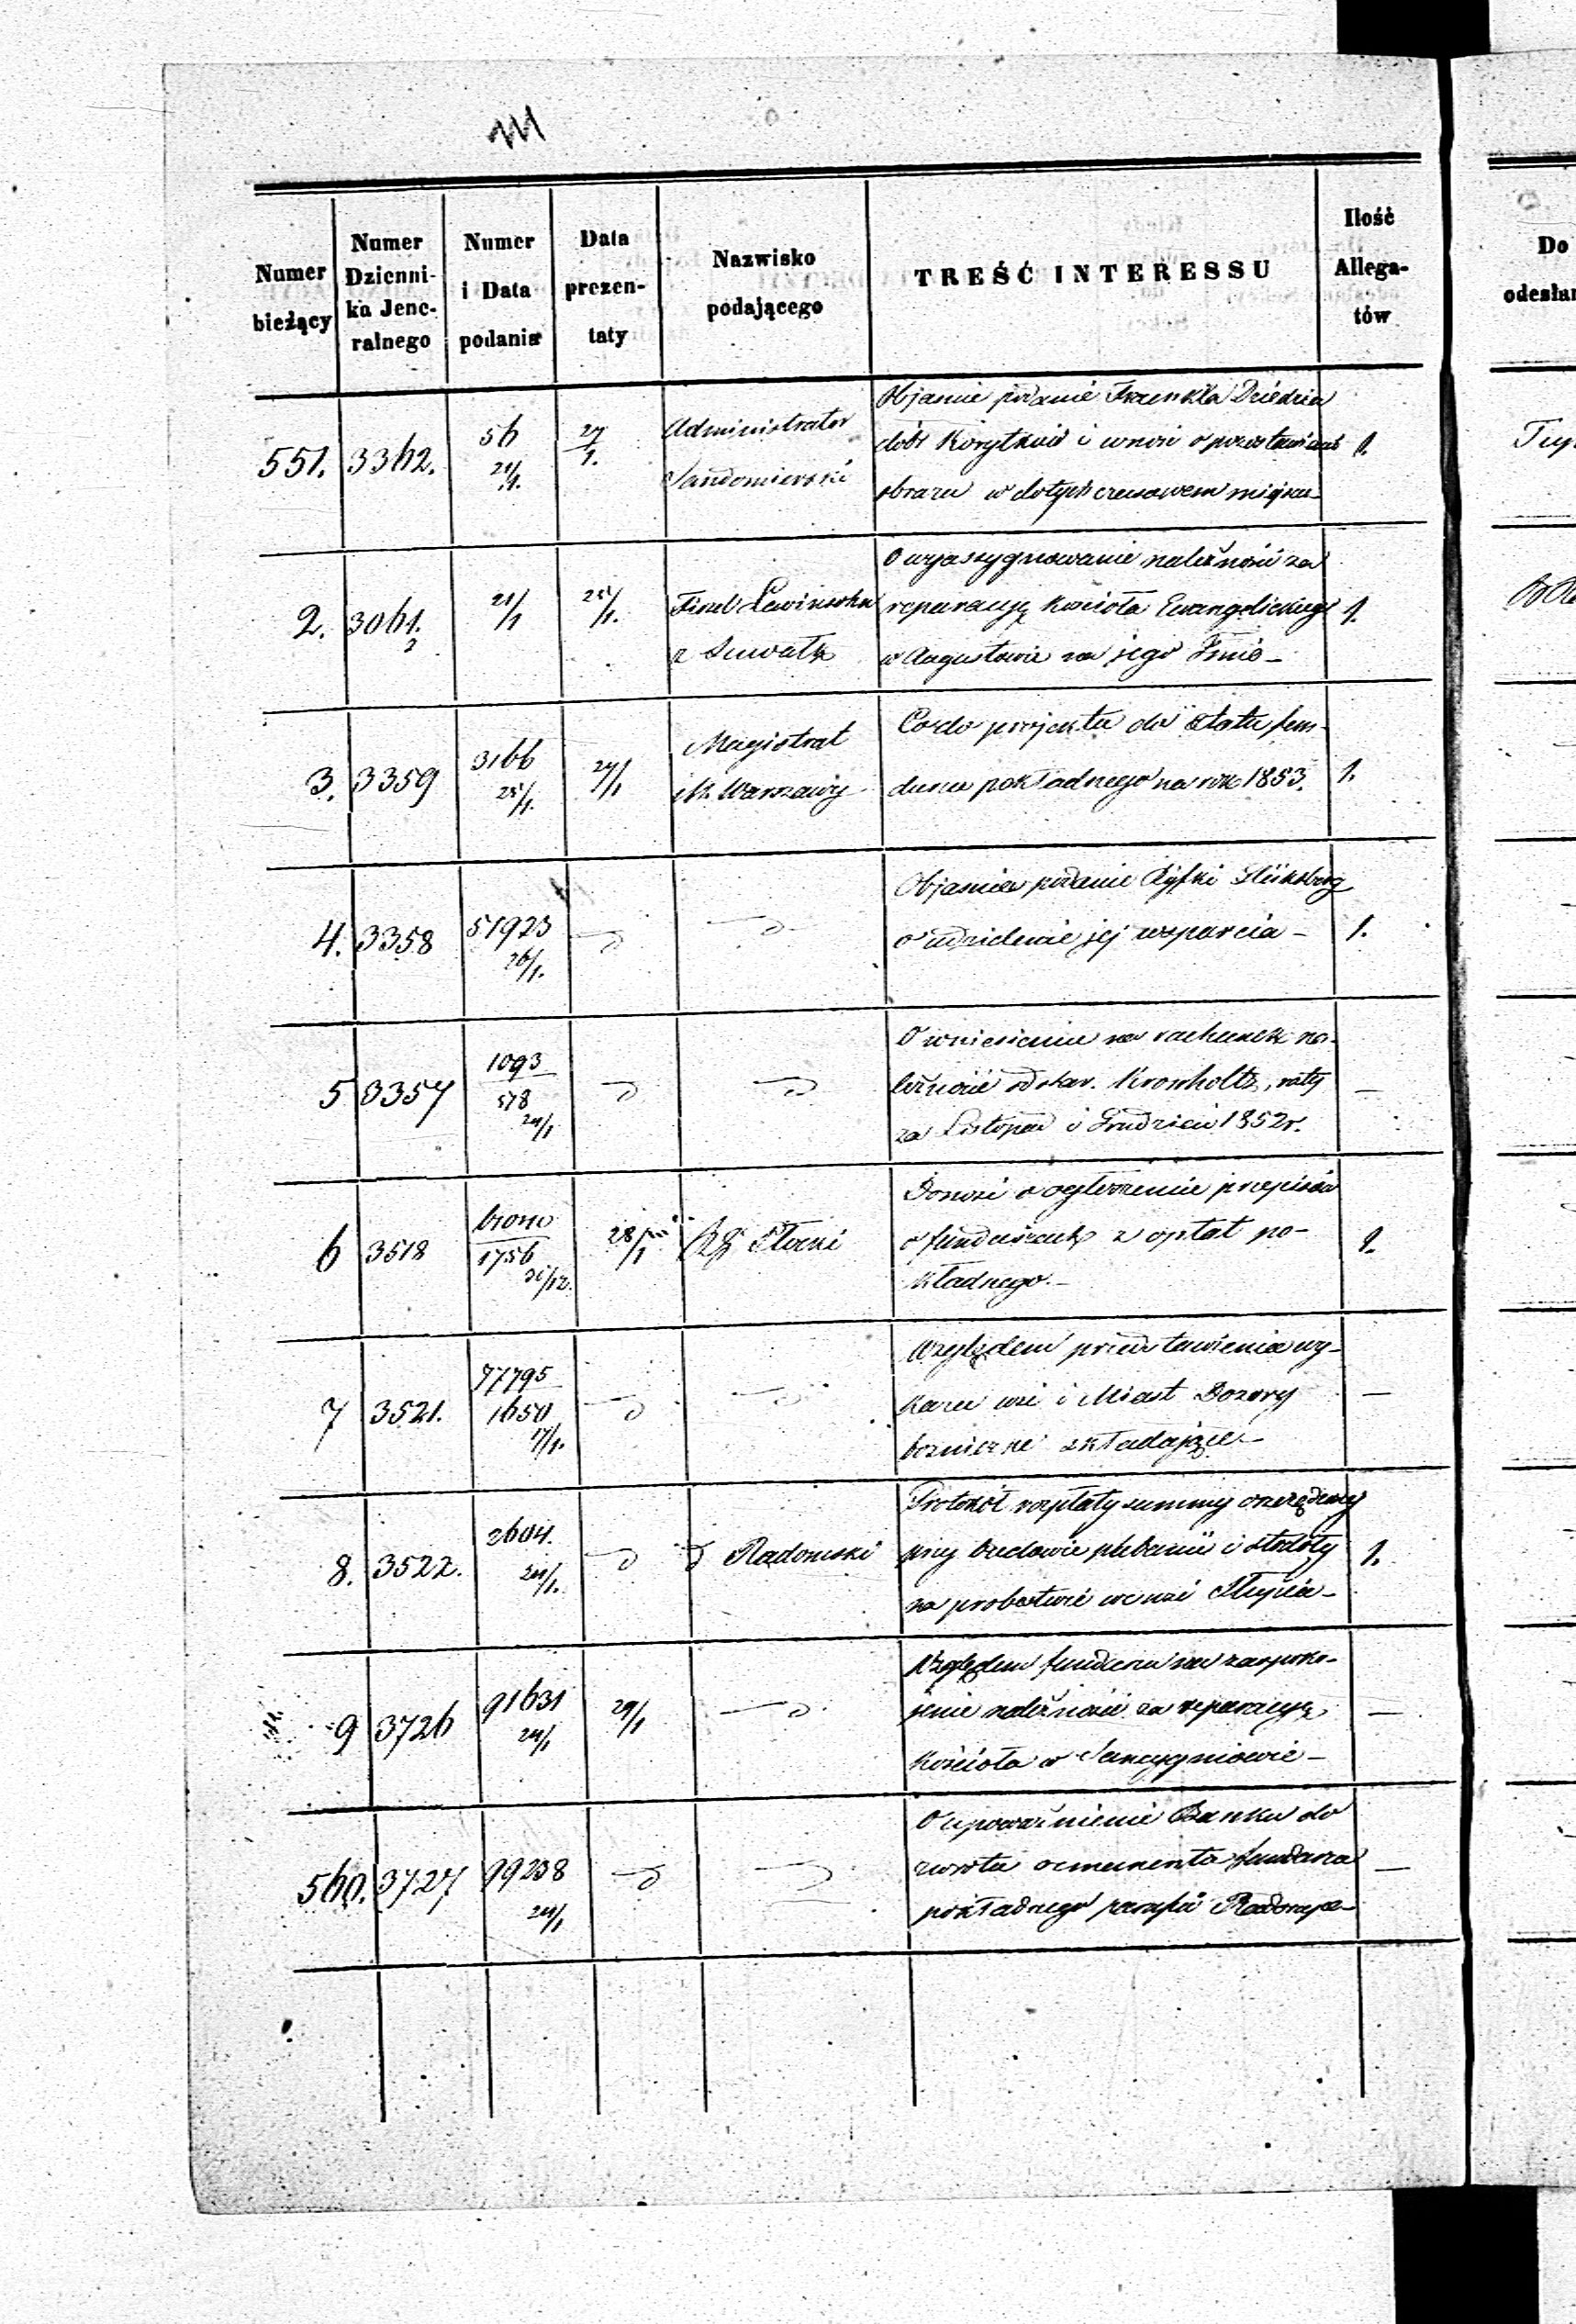 Numer bieżący
Numer Dzienni-ka Jene-ralnego
Numer i Data podania
Data prezen-taty
Nazwisko podającego
TREŚĆ INTERESSU
Ilość Allega-tów
Do
odesłan
551. 3362. 56 21/1. 27/1. Administrator Sandomierski
Objasnia podanie Frenkla Dziedzica
dóbr Korytków i wnosi o pozostawienie
obrazu w dotychczasowem miejscu 1.
2. 3061. 21/1 25/1. Fisel Lewinsohn z Suwałk
O wyassygnowanie należności za
reparacyę kościoła Ewangelickiego
w Augustowie na jego Imię 1.
3. 3359 3166 25/1. 27/1 Magistrat M. Warszawy
Co do projektu do Etatu fun-
duszu pokładnego na rok 1853. 1.
4. 3358 51923 26/1. d d
Objasnia podanie Ryfki
o udzielenie jej wsparcia 1.
5 3357 1093 578 24/1 d d
O wniesienie na rachunek na-
leżności od skar. Kronholtz, raty
za Listopad i Grudzień 1852 r. —
6 3518 1756 31/12. 28/1 RG Płocki
Donosi o ogłoszenie przepisów
o funduszach z opłat po-
kładnego. 1.
7 3521. 77795 1650 17/1. d d
Względem przedstawienia wy-
kazu wsi i Miast Dozory
bożnicze składające —
8. 3522. 2604. 24/1. d d Radomski
Protokół rozpłaty summy oszczędzonej
przy budowie plebanii i stodoły
na probostwie we wsi Słupia 1.
9 3726 91631 24/1 29/1 d
Względem funduszu na zaspoko-
jenie należności za reparacyę
Kościoła w Sancygniowie —
560. 3727 99238 24/1 d d
O upoważnienie Banku do
zwrotu funduszu
pokładnego parafii —